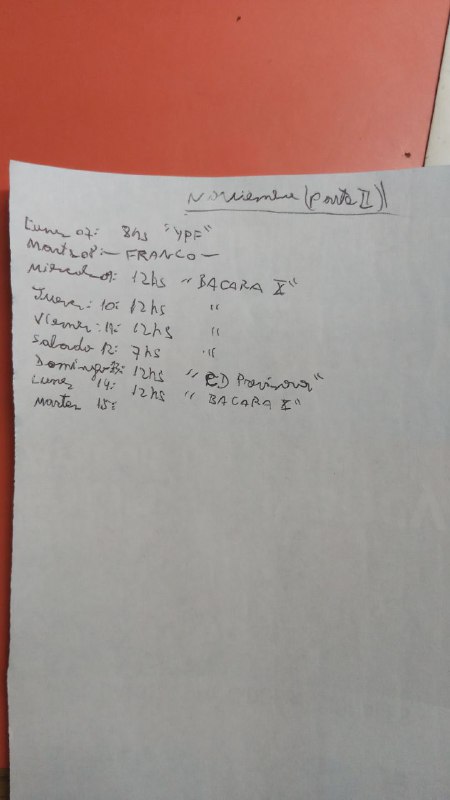 Noviembre (parte II)
Lunes 07: 8hs "YPF"
Martes 08: - FRANCO -
Miercoles 09: 12hs "BACARA X"
Jueves: 10: 12hs "
Viernes: 11: 12hs "
Sabado 12: 7hs "
Domingo 13: 12hs "CD
Lunes 14: 12hs "BACARA X"
Martes 15: